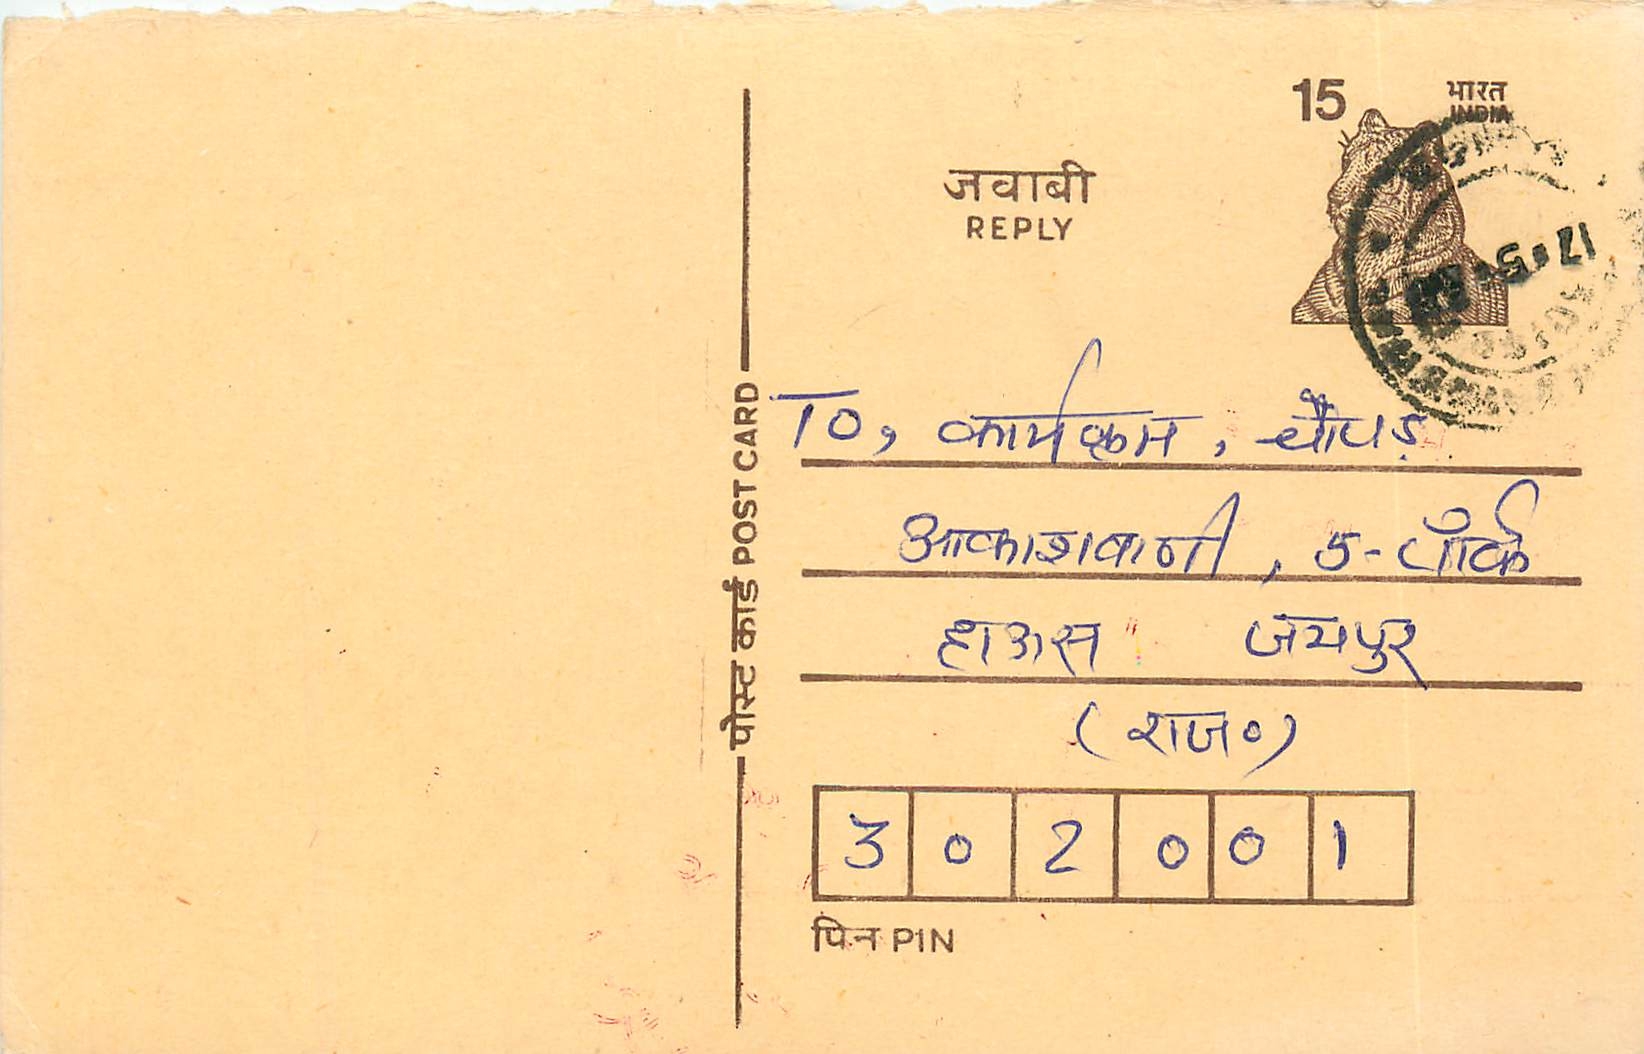 15 भारत
INDIA
जवाबी
REPLY
17.5.
पोस्ट कार्ड POST CARD
To, कार्यक्रम, चौपड़
आकाशवाणी, 5-पॉर्क
हाऊस जयपुर
(राज०)
3 0 2 0 0 1
पिन PIN